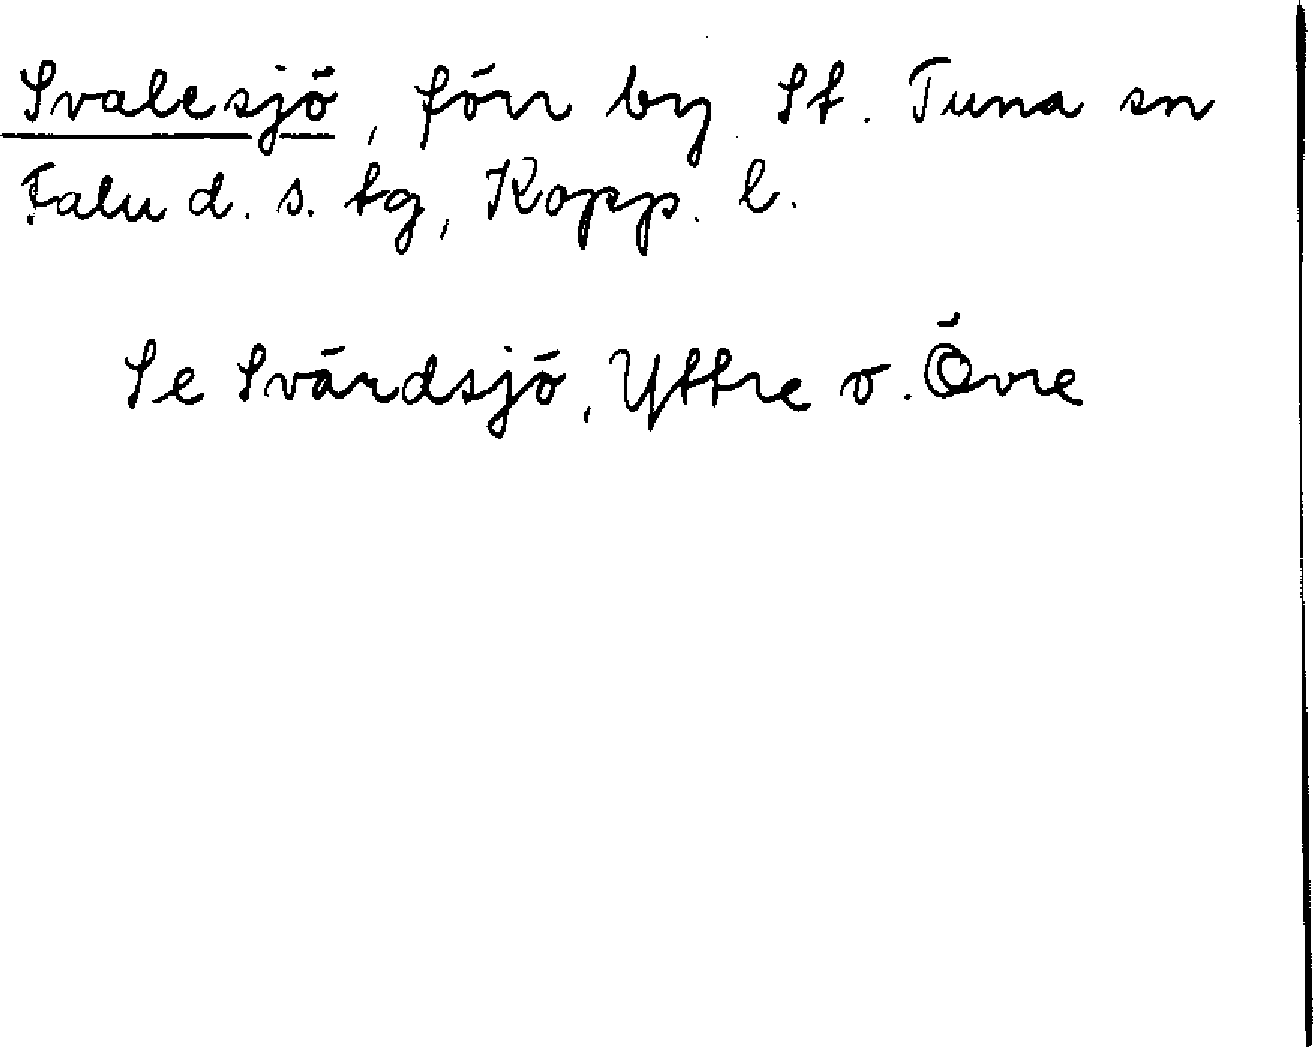 Svalesjö, förr by St. Tuna sn
Falu d. s. tg, Kopp. l.
Se Svärdsjö, Yttre o. Övre